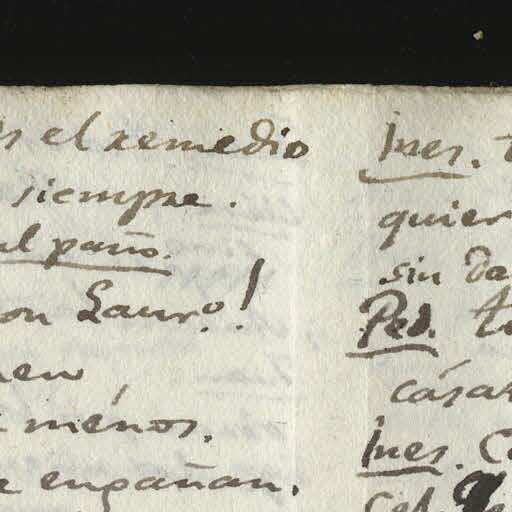 el remedio
siempre.
al paño.
on Lauro!
men
menos.
engañan.
Ines.
quier
sin da
Ped.
cásar
Ines. C
Cel.